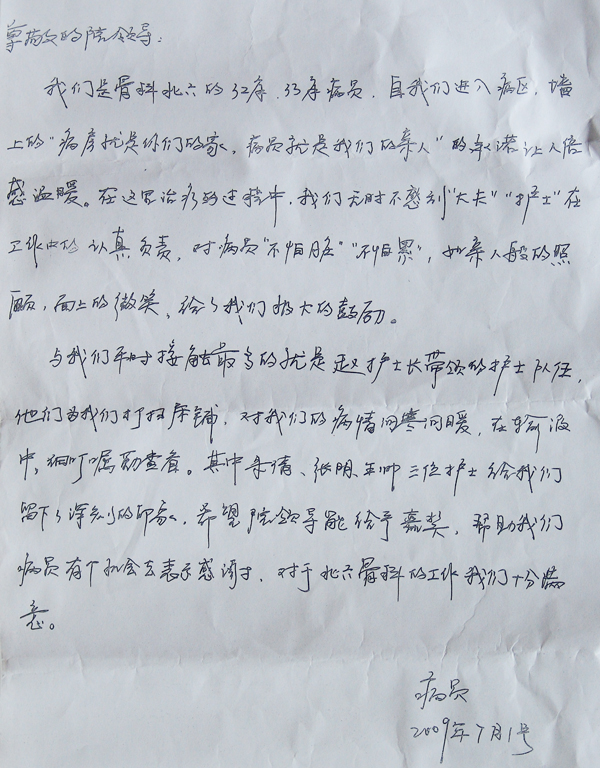 尊敬的院领导:
我们是骨科北六的32床、33床病员,自我们进入病区,墙
上的"病房就是你们的家,病员就是我们的亲人"的承诺让人倍
感温暖。在这里治疗的过程中,我们无时不感到"大夫""护士"在
工作中的认真负责,对病员"不怕脏""不怕累",如亲人般的照
顾,面上的微笑、给了我们极大的鼓励。
与我们平时接触最多的就是赵护士长带领的护士队伍,
他们为我们打扫床铺,对我们的病情问寒问暖,在输液
中,细叮嘱勤查看。其中 倩、张明、 帅三位护士给我们
留下了深刻的印象,希望院领导能给予嘉奖,帮助我们
病员有个机会去表示感谢,对于北六骨科的工作我们十分满
意。
病员
2009年7月1号